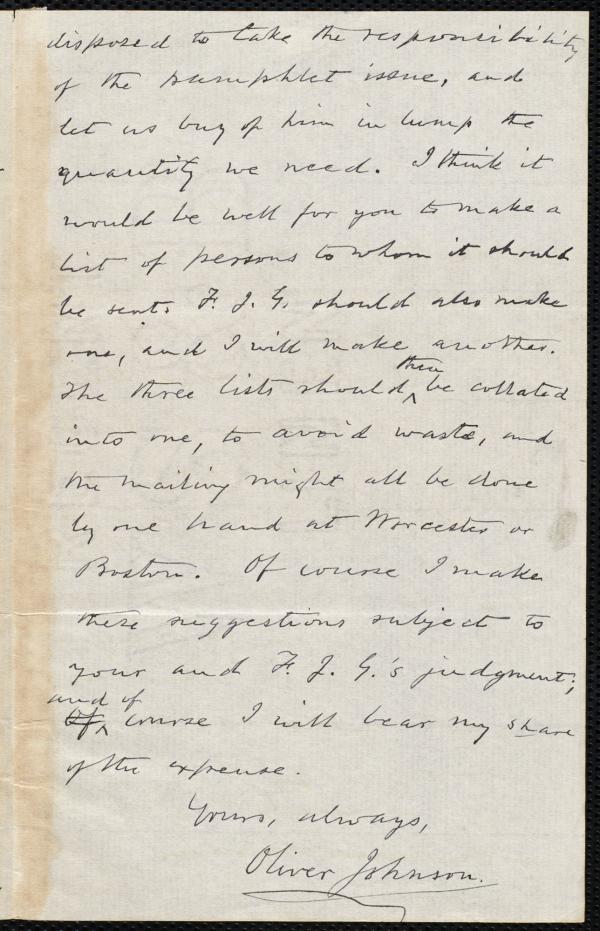 disposed to take the responsibility
of the pamphlet issue, and
let us buy of him in lump the
quantity we need. I think it
would be well for you to make a
list of persons to whom it should
be sent. F. J. G. should also make
one, and I will make another.
The three lists should then be collated
into one, to avoid waste, and
the mailing might all be done
by one hand at Worcester or
Boston. Of course I make
these suggestions subject to
your and F. J. G.'s judgment;
and of course I will bear my share
of the expense.
Yours, always,
Oliver Johnson.